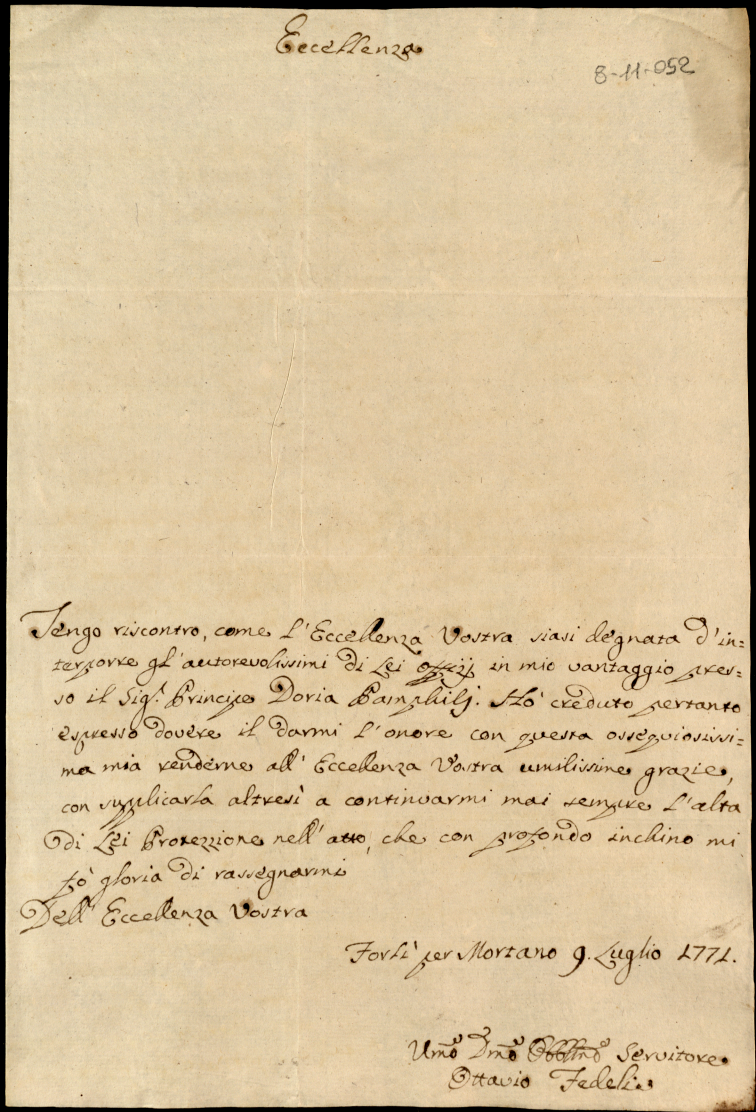 Eccellenza
8-11-052
Tengo riscontro, come l'Eccellenza Vostra siasi degnata d'in=
terporre gl'autorevolissimi di Lei offizij in mio vantaggio pres=
so il Sigr. Principe Doria Pamphilj. Hò creduto pertanto
espresso dovere il darmi l'onore con questa ossequiosissi=
ma mia renderne all'Eccellenza Vostra umilissime grazie,
con supplicarla altresì a continuarmi mai sempre l'alta
di Lei Protezzione nell'atto, che con profondo inchino mi
fò gloria di rassegnarmi
Dell'Eccellenza Vostra
Forlì per Mortano 9. Luglio 1771.
Umo Dmo Obblmo Servitore
Ottavio Fedeli